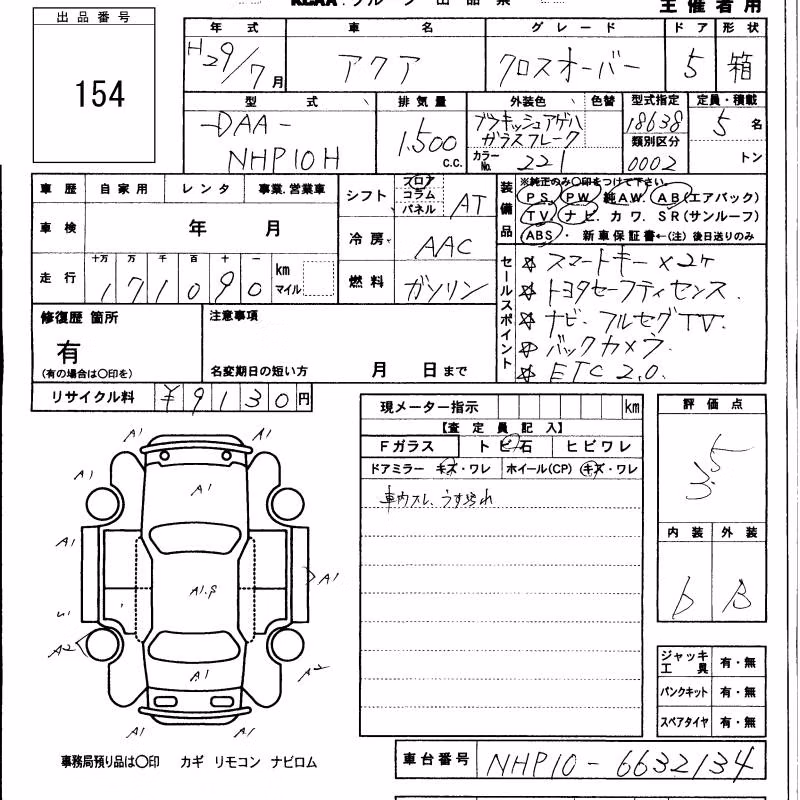 KCAA グループ 出品票
主催者用
出品番号
154
年式 車名 グレード ドア 形状
H29/7月 アクア クロスオーバー 5 箱
型式 排気量 外装色 色替 型式指定 定員・積載
DAA- NHP10H 1,500 c.c. ブラキッシュアゲハガラスフレーク 18638 5名
カラーNo. 221 類別区分 0002 トン
車歴 自家用 レンタ 事業.営業車
車検 年 月
走行 十万 万 千 百 十 一 km マイル
171090
シフト フロア コラム パネル AT
冷房 AAC
燃料 ガソリン
装備品 ※純正のみ○印をつけて下さい。
PS. PW. 純AW. AB(エアバック)
TV. ナビ. カワ. SR(サンルーフ)
ABS・ 新車保証書←(注)後日送りのみ
セールスポイント
☆ スマートキー×2ケ
☆ トヨタセーフティセンス.
☆ ナビ. フルセグTV.
☆ バックカメラ.
☆ ETC 2.0.
修復歴 箇所
有
(有の場合は○印を)
注意事項
名変期日の短い方 月 日まで
リサイクル料 ¥9130円
現メーター指示 km
【査定員記入】
Fガラス トビ石 ヒビワレ
ドアミラー キズ・ワレ ホイール(CP) キズ・ワレ
車内スレ、うす汚れ
評価点
3.5
内装 外装
b B
A1 A1
A1 A1 A1
A1 A1.P A1
A2 A1 A2
A1 A1
ジャッキ工具 有・無
パンクキット 有・無
スペアタイヤ 有・無
事務局預り品は○印 カギ リモコン ナビロム
車台番号 NHP10-6632134